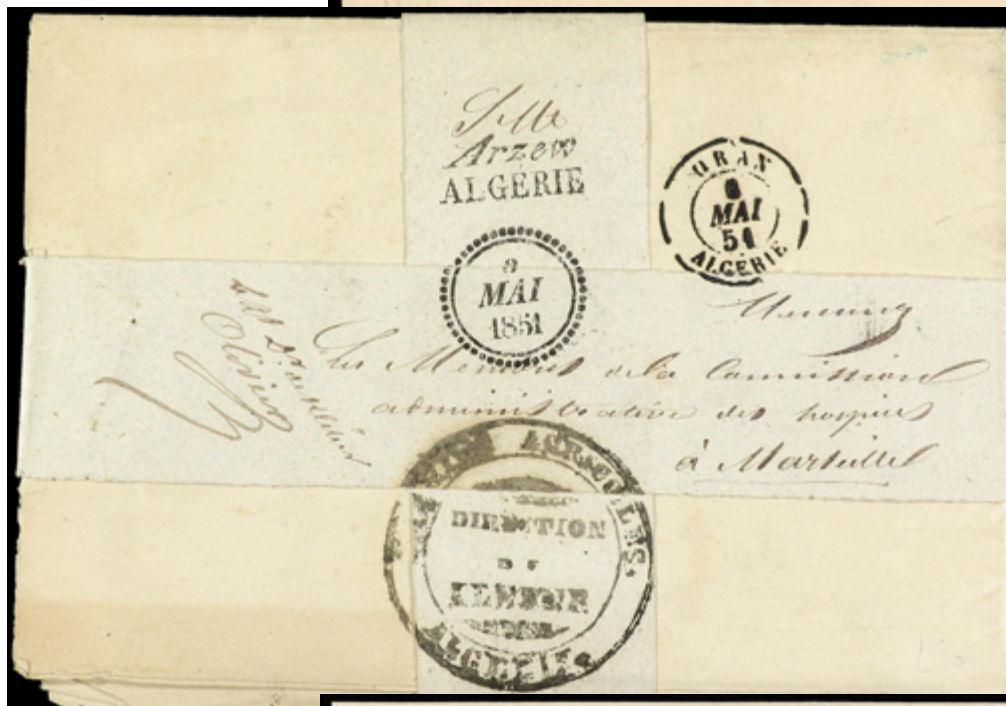 Arzew
ALGÉRIE
8
MAI
1851
ORAN
8
MAI
51
ALGÉRIE
Messieurs
Les Membres de la Commission
administrative des hospices
à Marseille
Olivier
AGRICOLES.
DIRECTION
DE
KLEBER
ALGERIE.